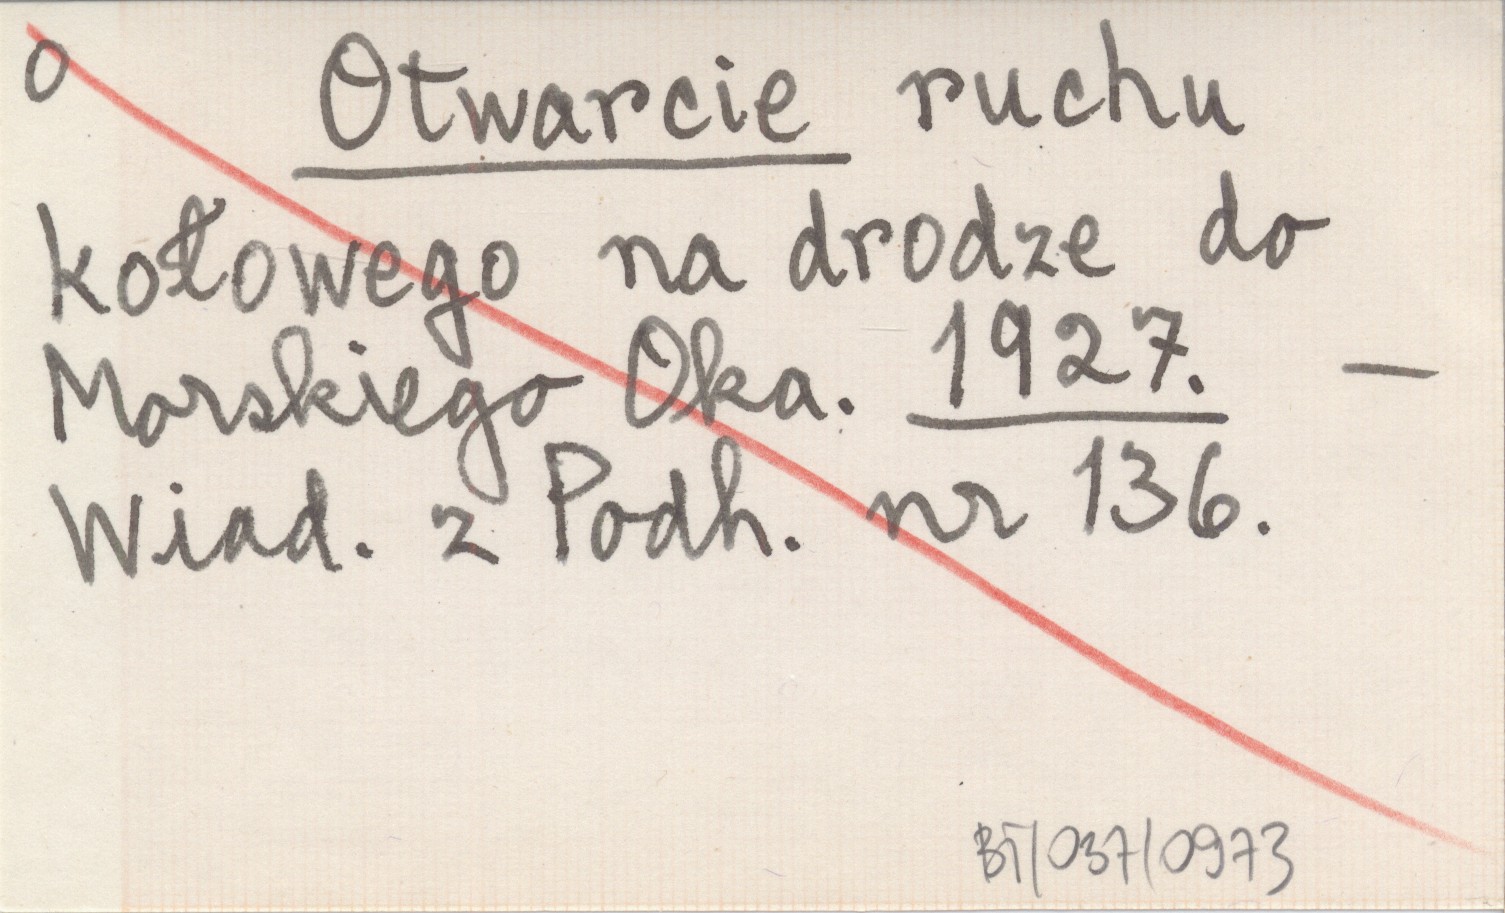 o Otwarcie ruchu
kołowego na drodze do
Morskiego Oka. 1927. —
Wiad. z Podh. nr 136.
BT/037/0973